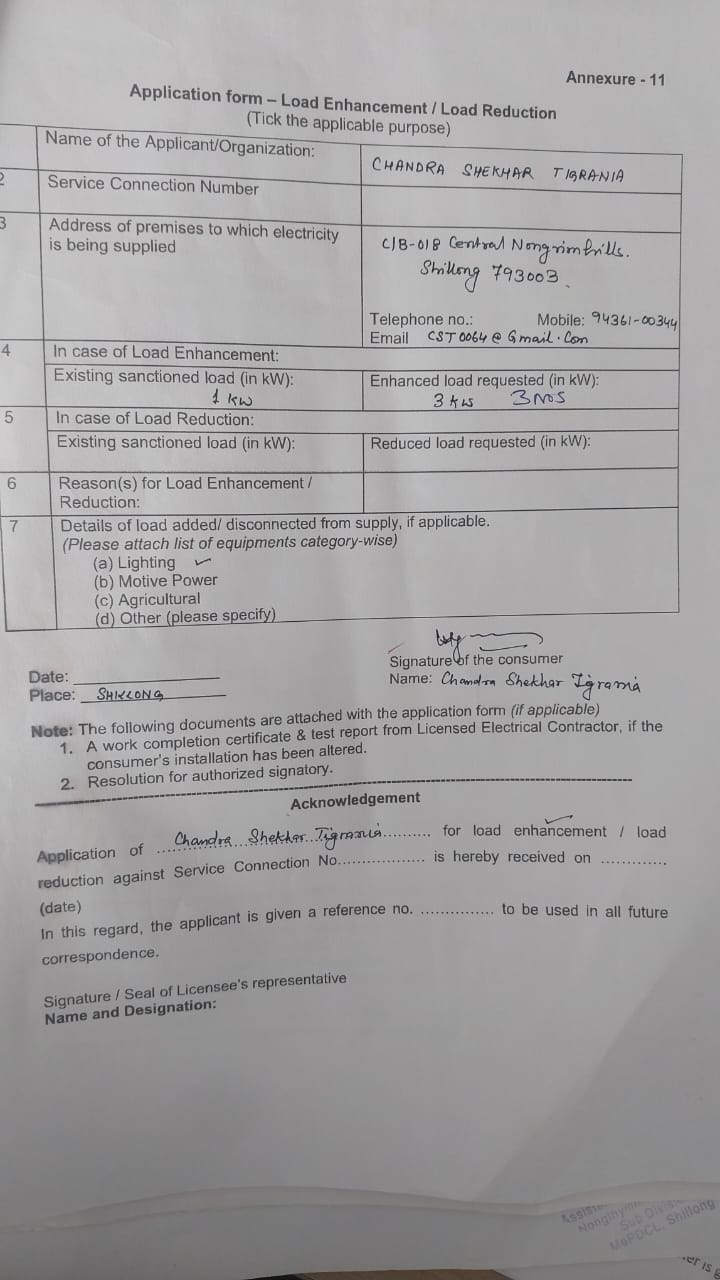 Annexure - 11
Application form – Load Enhancement / Load Reduction
(Tick the applicable purpose)
Name of the Applicant/Organization:
CHANDRA SHEKHAR TIGRANIA
2 Service Connection Number
3 Address of premises to which electricity
is being supplied
C/B-018 Central Nongrimhills.
Shillong 793003.
Telephone no.: Mobile: 94361-00344
Email CST0064@Gmail.Com
4 In case of Load Enhancement:
Existing sanctioned load (in kW): Enhanced load requested (in kW):
1 KW 3 KW 3 NOS
5 In case of Load Reduction:
Existing sanctioned load (in kW): Reduced load requested (in kW):
6 Reason(s) for Load Enhancement /
Reduction:
7 Details of load added/ disconnected from supply, if applicable.
(Please attach list of equipments category-wise)
(a) Lighting ✓
(b) Motive Power
(c) Agricultural
(d) Other (please specify)
Signature of the consumer
Date:
Name: Chandra Shekhar Tigrania
Place: SHILLONG
Note: The following documents are attached with the application form (if applicable)
1. A work completion certificate & test report from Licensed Electrical Contractor, if the
consumer's installation has been altered.
2. Resolution for authorized signatory.
Acknowledgement
Application of ......Chandra Shekhar Tigrania.......... for load enhancement / load
reduction against Service Connection No.................. is hereby received on .............
(date)
In this regard, the applicant is given a reference no. ............... to be used in all future
correspondence.
Signature / Seal of Licensee's representative
Name and Designation:
Sub Divis
MePDCL, Shillong